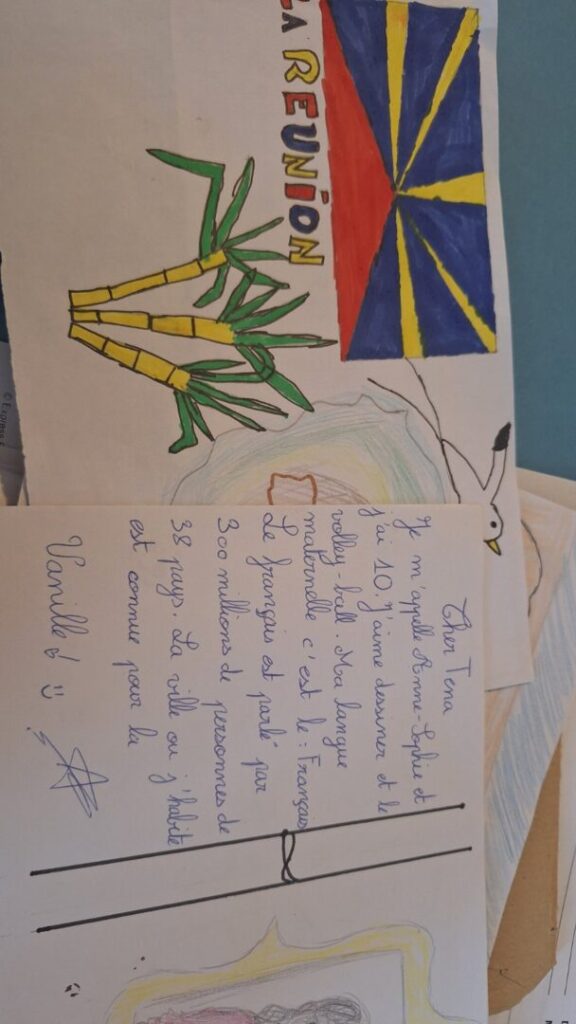 LA REUNION
Cher Tena
Je m'appelle Anne-Sophie et
j'ai 10. J'aime dessiner et le
volley-ball. Ma langue
maternelle c'est le : Français
Le français est parlé par
300 millions de personnes de
38 pays. La ville ou j'habite
est connue pour la
Vanille! :)